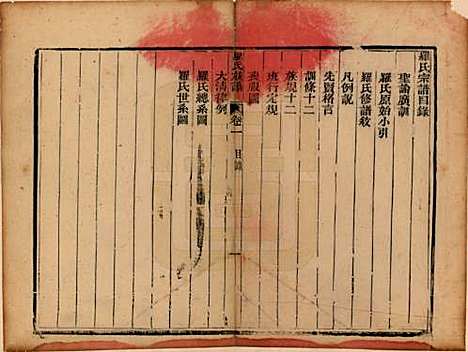 羅氏宗譜目錄
聖諭廣訓
羅氏原始小引
羅氏修譜敘
凡例說
先賢格言
訓條十二
族規十二
班行定規
喪服圖
羅氏族譜 卷一 目錄 一
大清律例
羅氏總系圖
羅氏世系圖